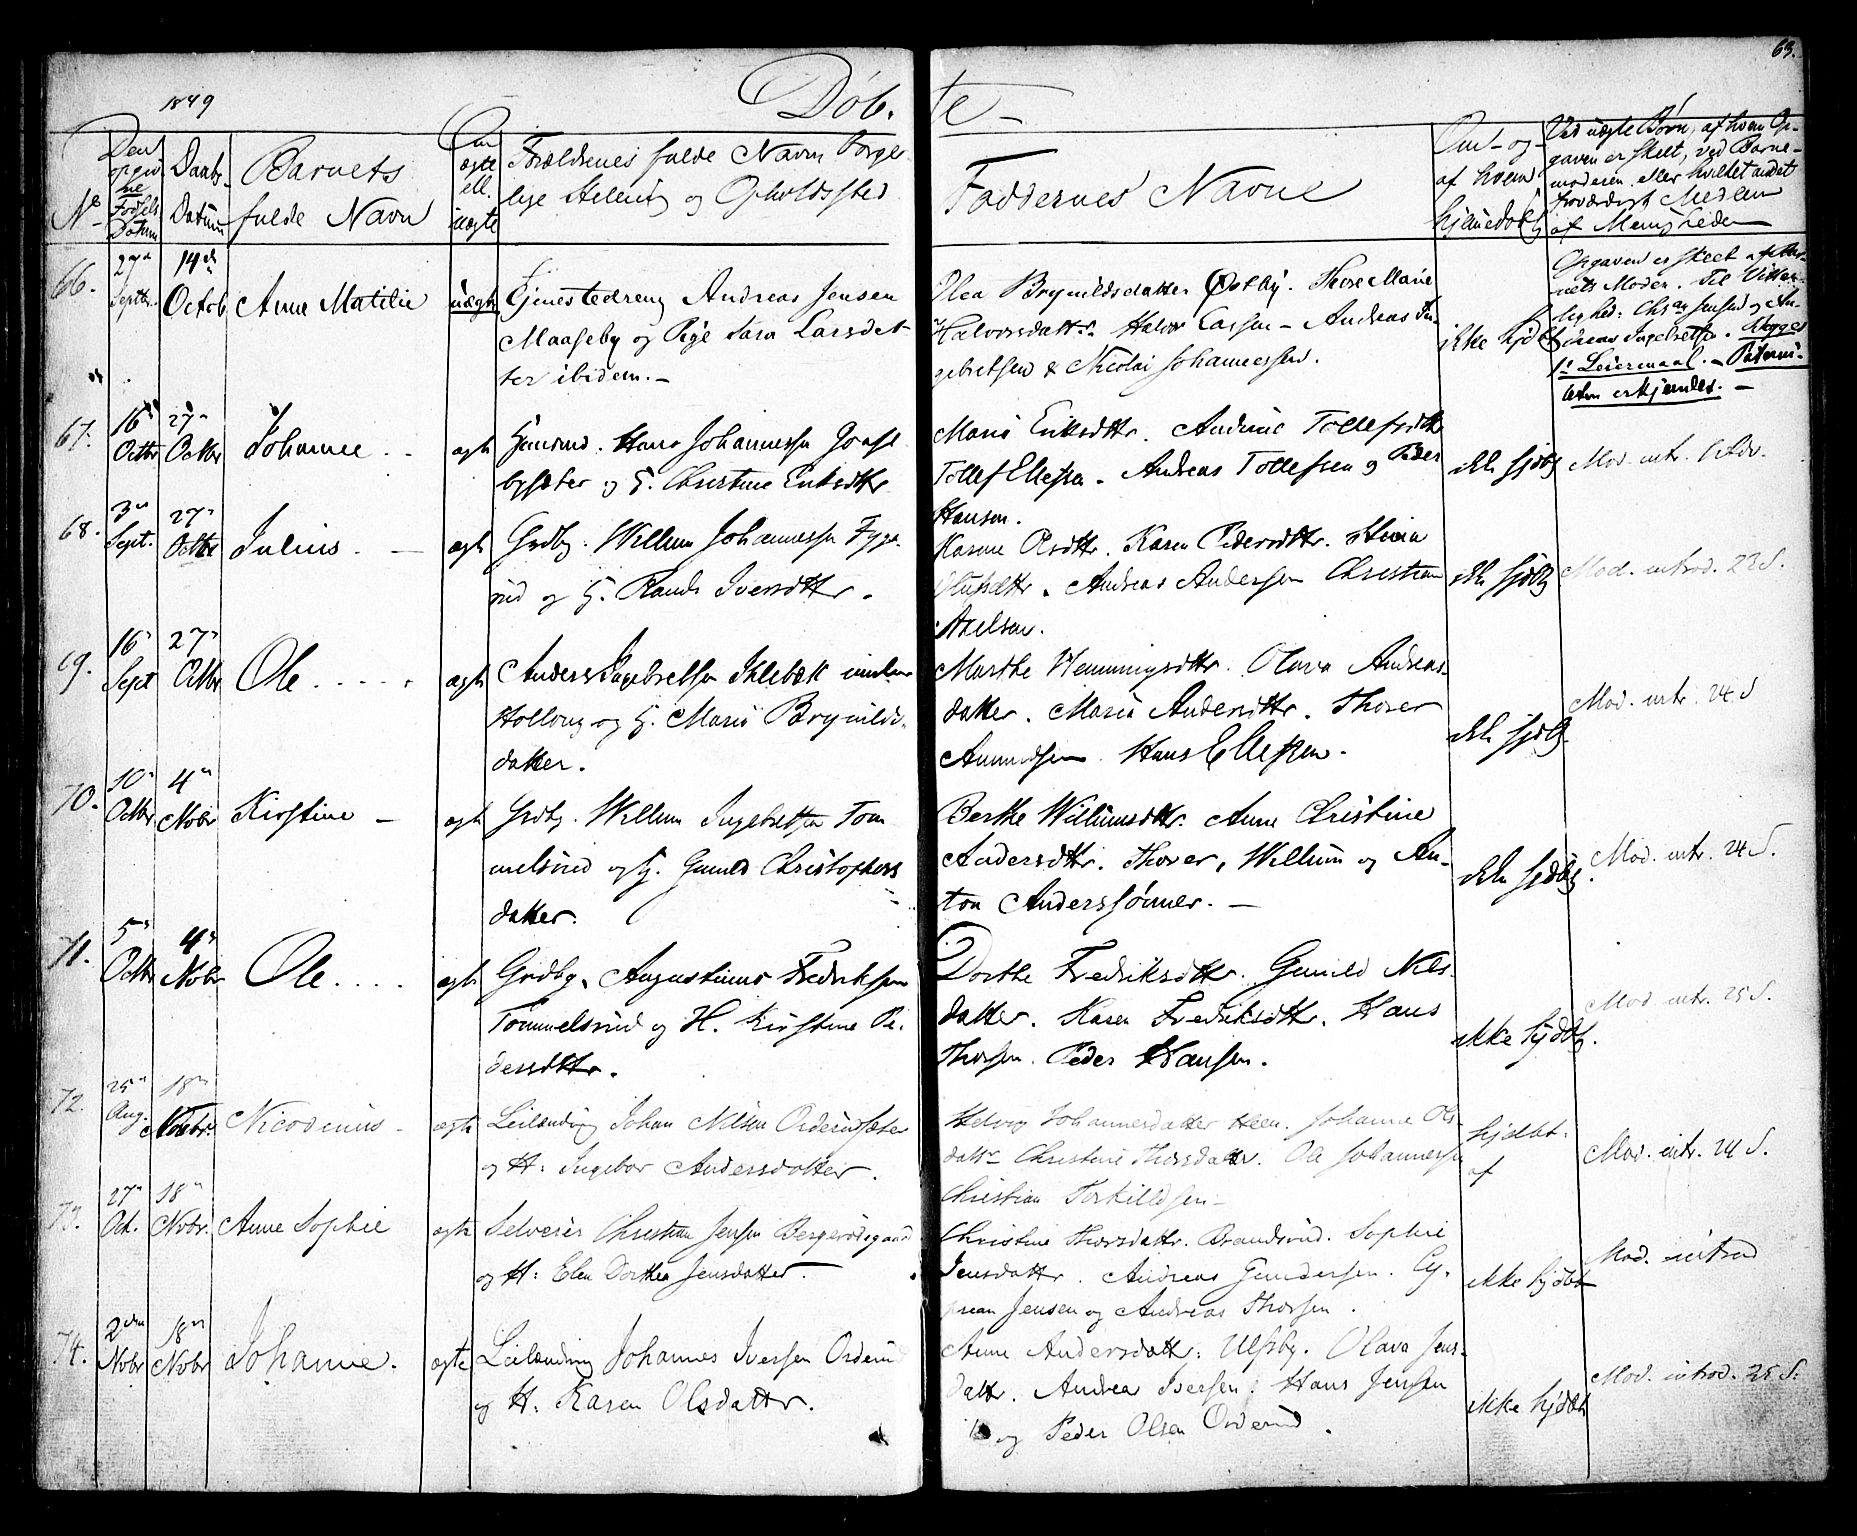 63.
1849
Døb-
te -
No
Den opgivne Fødsels Datum
Daabs-Datum
Barnets fulde Navn
Om ægte ell. uægte
Forældrenes fulde Navn Borgerlige Stilling og Opholdssted
Faddernes Navne
Om - og - af hvem hjemedøbt
Ved uægte Børn, af hvem Opgaven er skeet, ved Barnemoderen eller hvilket andet troværdigt Medlem af Menigheden
66. 27de Septbr. 14de Octob Anne Matilie uægte Tjenestedreng Andreas Jensen
Maaseby og Pige Sara Larsdat-
ter ibidem. -
Olea Brynildsdatter Østby. Thore Marie
Halvorsdattr. Halvor Larsen - Andreas In-
gebretsen & Nicolai Johannessen.
ikke hjdbt
Opgaven er skeet af Bar-
nets Moder. Til Vitter-
lighed: Chr. Jensen og An-
dreas Ingebretsen. Begges
1ste Leiermaal. - Paterni-
teten erkjendes. -
67. 16 Octbr 27 Octbr Johanne - - ægte Hans Johannessen
og H. Christine Eriksdttr
Maria Eriksdttr. Andrine Tollefsdttr
Tollef Ellefsen. Andreas Tollefsen og Peder
Hansen.
ikke hjdbt Mod. intr.
68. 3 Sept. 27 Octbr Julius. - ægte Grdbr. Willum Johannessen Tyge-
rud og H. Randi Iversdttr.
Karine Olsdttr. Karen Pedersdttr.
Olufsdttr. Andreas Andersen Christian
Axelsen.
ikke hjdbt Mod. introd. 23 S.
69. 16 Sept 27 Octbr Ole . . . . ægte Anders Ingebretsen Iklebæk
og H. Maria Brynilds-
datter.
Marthe Hemmingsdttr. Olava Andreas-
datter. Maria Andersdttr. Thorer
Amundsen. Hans Ellefsen.
ikke hjdbt Mod. intr. 24 S
70. 10 Octbr 4 Nobr Kirstine - ægte Grdbr. Willum Ingebretsen Tom
melsrud og H. Gunild Christophers
datter.
Berthe Willumsdttr. Anne Christine
Andersdttr. Thorer, Willum og An-
ton Anderssønner. -
ikke hjdbt Mod. intr. 24 S.
71. 5 Octbr 4 Nobr Ole . . . . ægte Grdbr. Augustinus Fredriksen
Tommelsrud og H. Kirstine Pe-
dersdttr.
Dorthe Fredriksdttr. Gunild Nils-
datter. Karen Fredriksdttr. Hans
Thorsen. Peder Hansen.
ikke hjdbt. Mod. intr. 25 S.
72. 25 Aug. 18 Nobr. Nicodemus - ægte Leilænding Johan Nilsen Orderudsæter
og H: Ingebor Andersdatter.
Helvig Johannesdatter Heen. Johanne Ols-
dattr Christine Thorsdattr. Ole Johannessen
Christian Torkildsen -
hjdbt. af Mod. intr. 24 S.
73. 27 Oct. 18 Nobr. Anne Sophie ægte Selveier Christian Jensen
og H: Elen Dorthea Jensdatter. -
Christine Thorsdattr. Brandsrud. Sophie
Jensdattr. Andreas Gundersen. Cy-
prian Jensen og Andreas Thorsen.
ikke hjdbt Mod. introd
74. 2den Nobr 18 Nobr Johanne. ægte Leilænding Johannes Iversen Orderud
og H. Karen Olsdattr.
Anne Andersdattr: Ulfsby. Olava Jens-
dattr. Andrea Iversen: Hans Jensen
og Peder Olsen Orderud.
ikke hjdbt Mod. introd. 25 S.